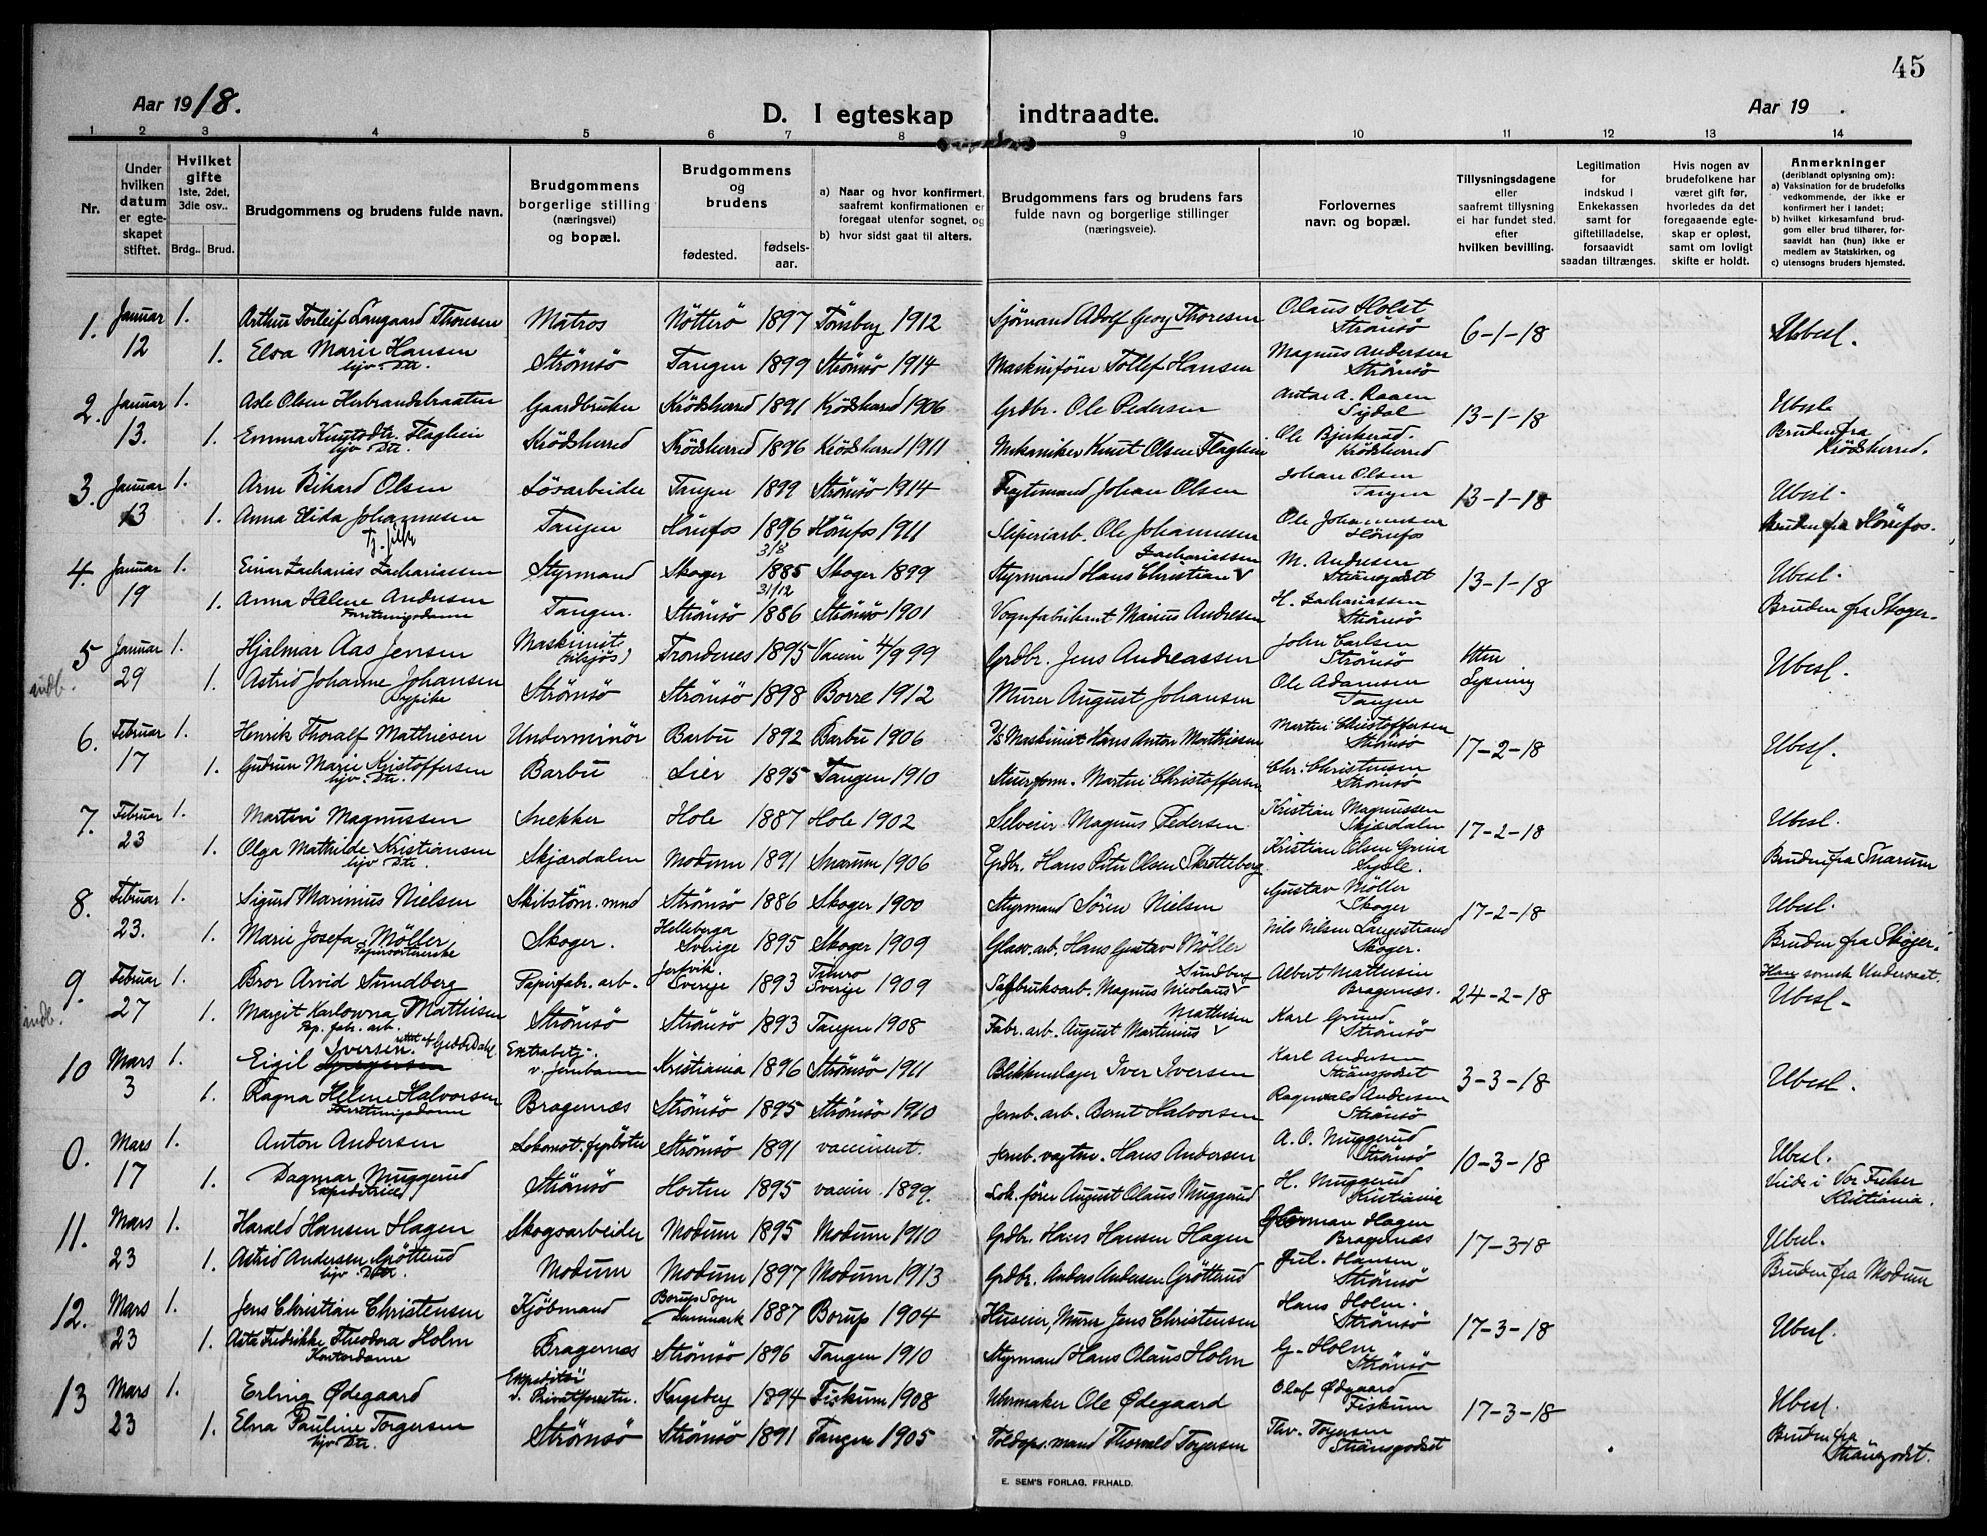 45
Aar 1918.
D. I egteskap indtraadte.
Aar 19 .
1 2 3 4 5 6 7 8 9 10 11 12 13 14
Nr.
Under hvilken datum er egteskapet stiftet.
Hvilket gifte 1ste, 2det, 3die osv..
Brdg.. Brud.
Brudgommens og brudens fulde navn.
Brudgommens borgerlige stilling (næringsvei) og bopæl.
Brudgommens og brudens
fødested. fødsels-aar.
a) Naar og hvor konfirmert, saafremt konfirmationen er foregaat utenfor sognet, og
b) hvor sidst gaat til alters.
Brudgommens fars og brudens fars fulde navn og borgerlige stillinger (næringsveie).
Forlovernes navn og bopæl.
Tillysningsdagene eller saafremt tillysning ei har fundet sted, efter hvilken bevilling.
Legitimation for indskud i Enkekassen samt for giftetilladelse, forsaavidt saadan tiltrænges.
Hvis nogen av brudefolkene har været gift før, hvorledes da det foregaaende egteskap er opløst, samt om lovligt skifte er holdt.
Anmerkninger (deriblandt oplysning om): a) Vaksination for de brudefolks vedkommende, der ikke er konfirmert her i landet; b) hvilket kirkesamfund brudgom eller brud tilhører, forsaavidt han (hun) ikke er medlem av Statskirken, og c) utensogns bruders hjemsted.
1. Januar 1. Arthur Torleif Langaard Thoresen Matros Nötterö 1897 Tönsberg 1912 Sjömand Adolf Georg Thoresen Olaus Holst Strömsö 6-1-18 Ubesl.
12 1. Elva Marie Hansen hjv. Dtr. Strömsö Tangen 1899 Strömsö 1914 Maskinförer Tollef Hansen Magnus Andersen Strömsö
2. Januar 1. Asle Olsen Herbrandsbraaten Gaardbruker Krödsherred 1891 Krödsherred 1906 Grdbr. Ole Pedersen Anton A. Raaen Sydal 13-1-18 Ubesl.
13. 1. Emma Knutsdtr. Flaglien hjv Dtr. Krödsherred Krödsherred 1896 Krödsherred 1911 Mekaniker Knut Olsen Flaglien Ole Bjerkerud. Krödsherred Bruden fra Krödsherred.
3. Januar 1. Arne Rikard Olsen Lösarbeider Tangen 1899 Strömsö 1914 Fragtemand Johan Olsen Johan Olsen Tangen 13-1-18 Ubesl.
13 1. Anna Elida Johannesen Tj. pike Tangen Hönefos 1896 Hönefos 1911 Sliperiarb. Ole Johannesen Ole Johannesen Hönefos Bruden fra Hönefos.
4. Januar 1. Einar Zacharias Zachariassen Styrmand Skoger 3/8 1885 Skoger 1899 Styrmand Hans Christian Zachariassen M. Andresen Strömsgodset 13-1-18 Ubesl.
19 1. Anna Helene Andresen Forretningsdame Tangen. Strömsö 31/12 1886 Strömsö 1901 Vognfabrikant Marius Andresen H. Zachariassen Strömsö Bruden fra Skoger.
5 Januar 1. Hjalmar Aas Jensen Maskinist (tilsjös) Trondenes 1895 Vaccin 4/9 99 Grdbr. Jens Andreassen John Carlsen Strömsö Uten Lysning Ubesl.
indb. 29 1. Astrid Johanne Johansen Sypike Strömsö Strömsö 1898 Borre 1912 Murer August Johansen Ole Adamsen Tangen
6. Februar 1. Henrik Thoralf Mathiesen Underminör Barbu 1892 Barbu 1906 D/S Maskinist Hans Anton Mathiesen Martin Christoffersen Strömsö 17-2-18 Ubesl.
17 1. Gudrun Marie Kristoffersen hjv. Dtr. Barbu Lier 1895 Tangen 1910 Stuerform. Martin Christoffersen Chr. Christensen Strömsö
7. Februar 1. Martin Magnussen Snekker Hole 1887 Hole 1902 Selveier Magnus Pedersen Kristian Magnussen Skjærdalen 17-2-18 Ubesl.
23 1. Olga Mathilde Kristiansen hjv Dtr. Skjærdalen Modum 1891 Snarum 1906 Grdbr. Hans Peter Olsen Skretteberg Kristian Olsen Sysle. Bruden fra Snarum
8. Februar 1. Sigurd Marinius Nielsen Skibstöm. mnd Strömsö 1886 Skoger 1900 Styrmand Sören Nielsen Gustav Möller Skoger 17-2-18 Ubesl.
23. 1. Marie Josefa Möller Skoger. Helleberga Sverige 1895 Skoger 1909 Glasv. arb. Hans Gustav Möller Nils Nilsen Langestrand Skoger. Bruden fra Skoger.
9. Februar 1. Bror Arvid Sundberg Papirfabr. arb. Jerfvik. Sverige 1893 Sverige 1909 Sagbruksarb. Magnus Nicolaus Sundberg Albert Mathisen Bragernæs. 24-2-18 Han svensk Undersaat. Ubesl.
indb. 27 1. Margit Karlowna Mathisen Pap. fabr. arb. Strömsö Strömsö 1893 Tangen 1908 Fabr. arb. August Martinius Mathisen Karl Grund Strömsö
10 Mars 1. Eigil Iversen. rettet af Gedde Dahl Extrabetj. v. Jernbanen Kristiania 1896 Strömsö 1911 Blikkenslager Iver Iversen Karl Andersen Strömsgodset 3-3-18 Ubesl.
3 1. Ragna Helene Halvorsen Forretningsdame Bragernæs Strömsö 1895 Strömsö 1910 Jernb. arb. Bernt Halvorsen Ragnvald Andersen Strömsö
0. Mars 1. Anton Andersen Lokomot. fyrböter Strömsö 1891 vaccinert. Jernb. vogter. Hans Andersen A. O. Muggerud Strömsö 10-3-18 Ubesl.
17 1. Dagmar Muggerud Expeditrice Strömsö Horten 1895 vaccin. 1899. Lok. förer August Olaus Muggerud H. Muggerud Kristiania Viede i Vor Frelser Kristiania.
11. Mars 1. Harald Hansen Hagen Skogsarbeider Modum 1895 Modum 1910 Grdbr. Hans Hansen Hagen Herman Hagen Bragernæs 17-3-18 Ubesl.
23 1. Astrid Andersen Gröttrud hjv. Dtr. Modum Modum 1897 Modum 1913 Grdbr. Anders Andersen Gröttrud Jul. Hansen Strömsö Bruden fra Modum
12. Mars 1. Jens Christian Christensen Kjöbmand Borup Sogn Danmark 1887 Borup 1904 Huseier, Murer Jens Christensen Hans Holm. Strömsö 17-3-18 Ubesl.
23 1. Asta Fredrikke Theodora Holm Kontordame Bragernæs Strömsö 1896 Tangen 1910 Styrmand Hans Olaus Holm G. Holm Strömsö
13 Mars 1. Erling Ødegaard Expeditör v. Privatforretn. Kongsberg 1894 Fiskum 1908 Uhrmaker Ole Ødegaard Olaf Ødgaard Fiskum 17-3-18 Ubesl.
23 1. Elna Pauline Torgersen hjv Dtr. Strömsö Strömsö 1891 Tangen 1905 Toldops. mand Thorvald Torgersen Thv. Torgersen Strömsgodset Bruden fra Strömsgodset.
E. SEM'S FORLAG, FR.HALD.